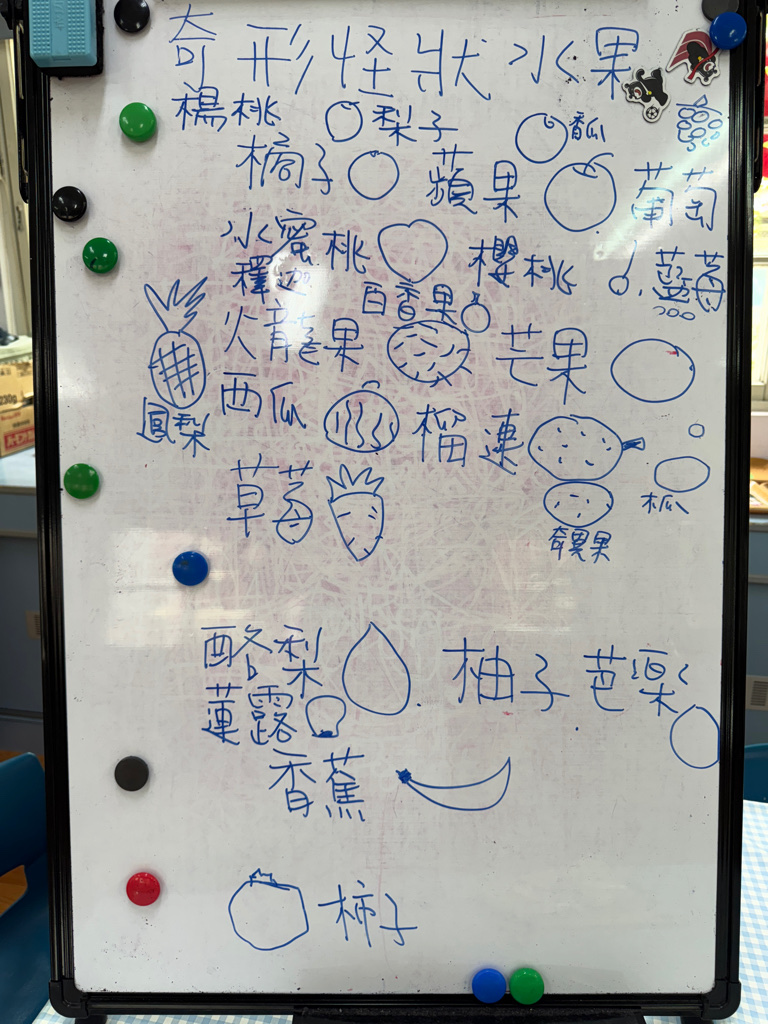 奇形怪狀水果
楊桃 梨子 香瓜
橘子 蘋果 葡萄
水蜜桃 櫻桃 藍莓
釋迦 百香果
火龍果 芒果
鳳梨 西瓜 榴連
草莓 木瓜
奇異果
酪梨 柚子 芭樂
蓮露
香蕉
柿子